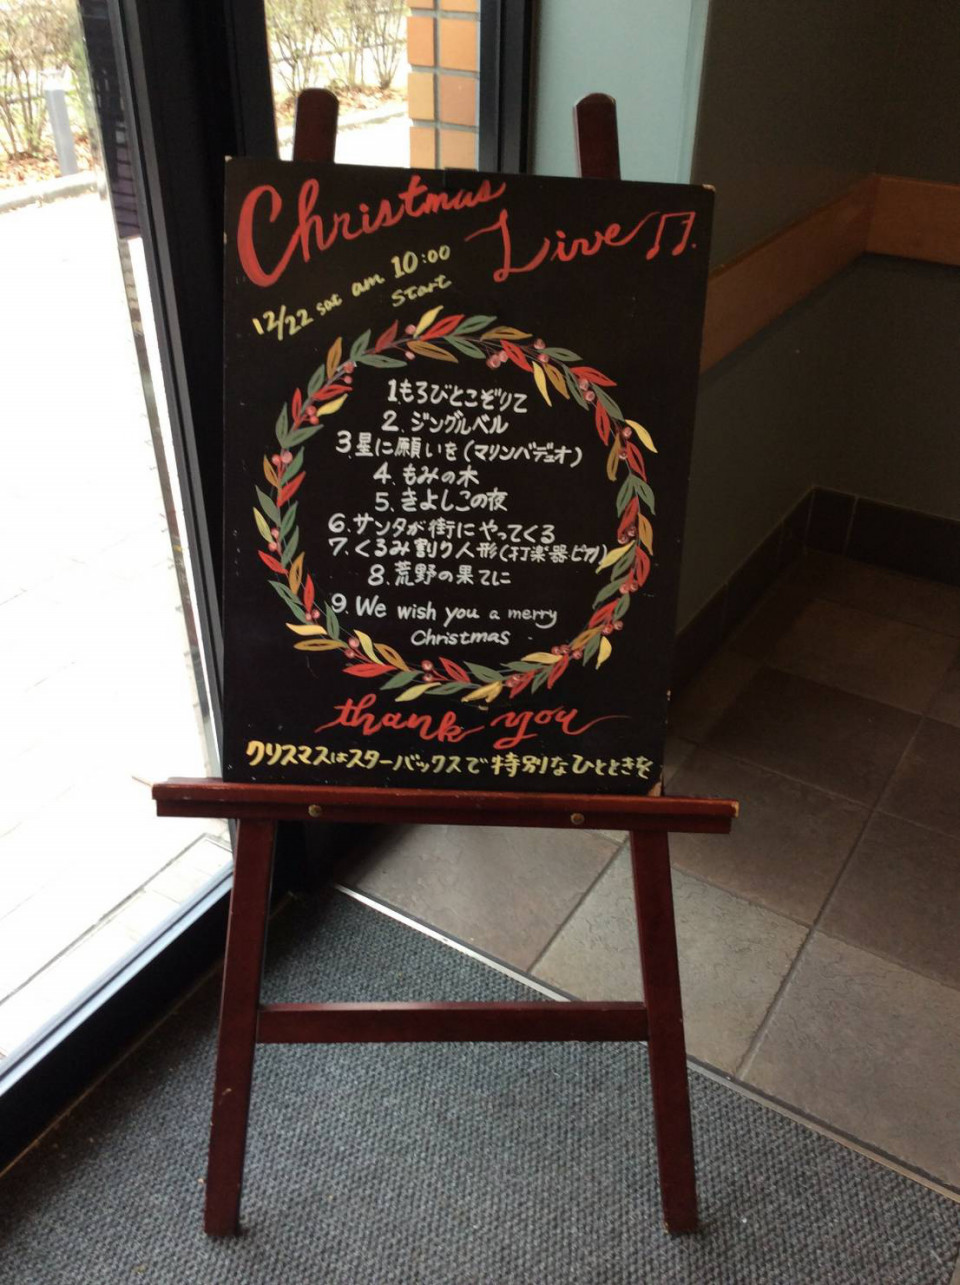 Christmas
Live♫.
12/22 sat am 10:00
start
1.もろびとこぞりて
2. ジングルベル
3.星に願いを(マリンバデュオ)
4. もみの木
5. きよしこの夜
6.サンタが街にやってくる
7.くるみ割り人形(打楽器ピアノ)
8. 荒野の果てに
9. We wish you a merry
Christmas
thank you
クリスマスはスターバックスで特別なひとときを